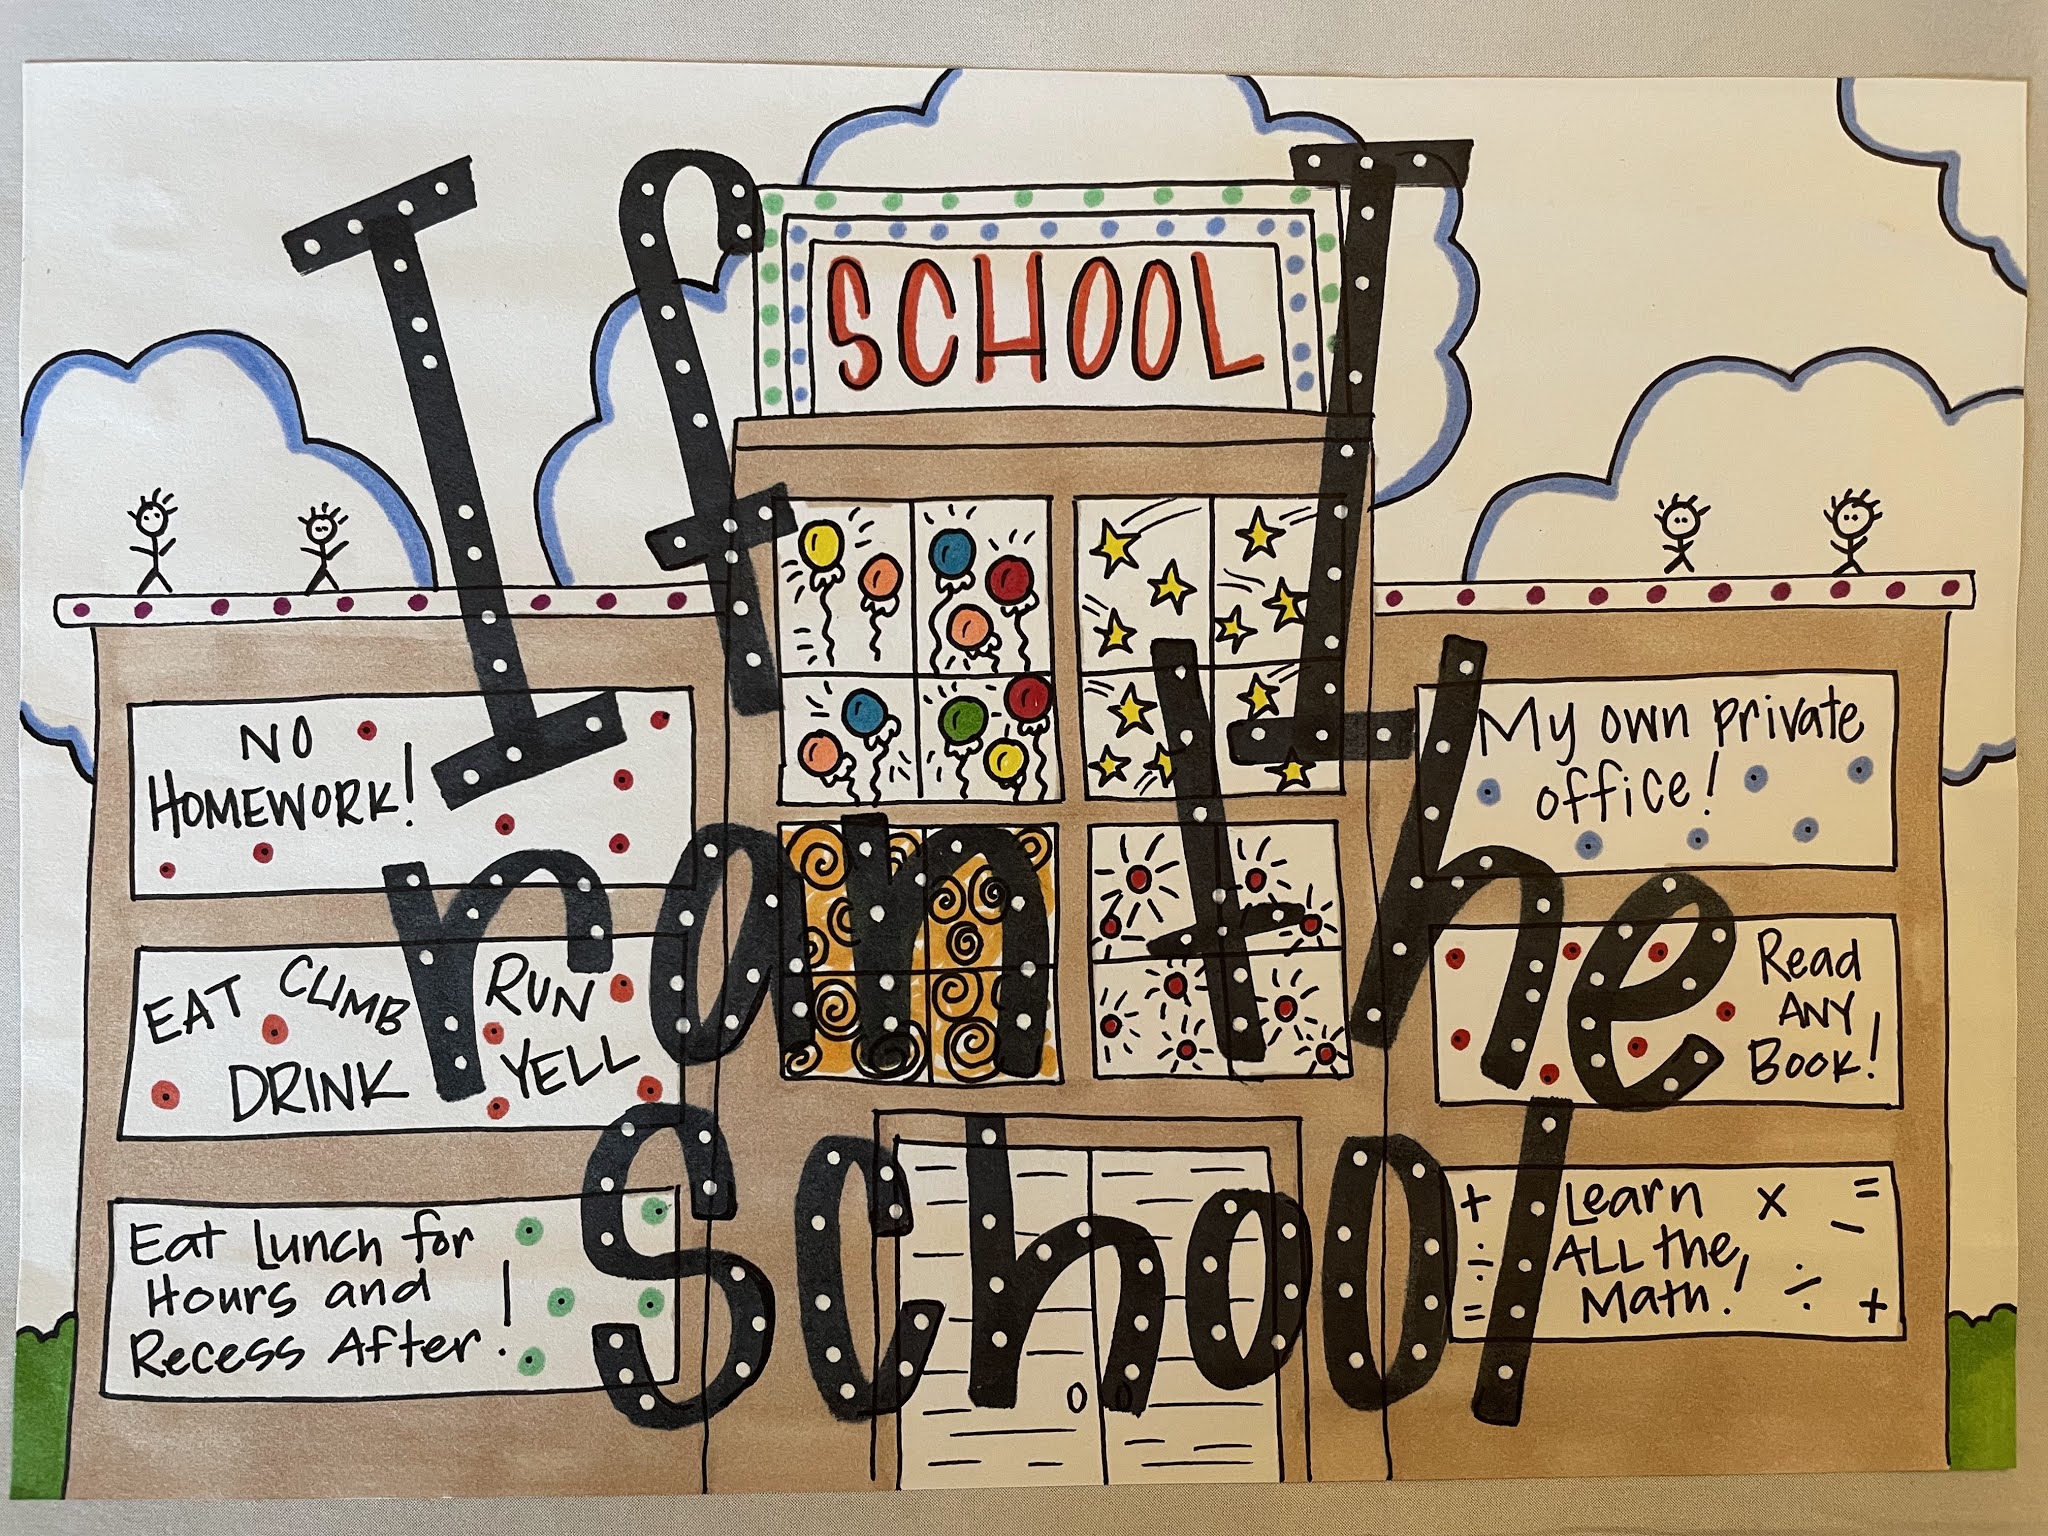 If I
ran the
School
SCHOOL
NO
HOMEWORK!
EAT CLIMB RUN
DRINK YELL
Eat Lunch for
Hours and
Recess After!
My own private
office!
Read
ANY
BOOK!
+ Learn x =
÷ ALL the -
= Math! ÷ +